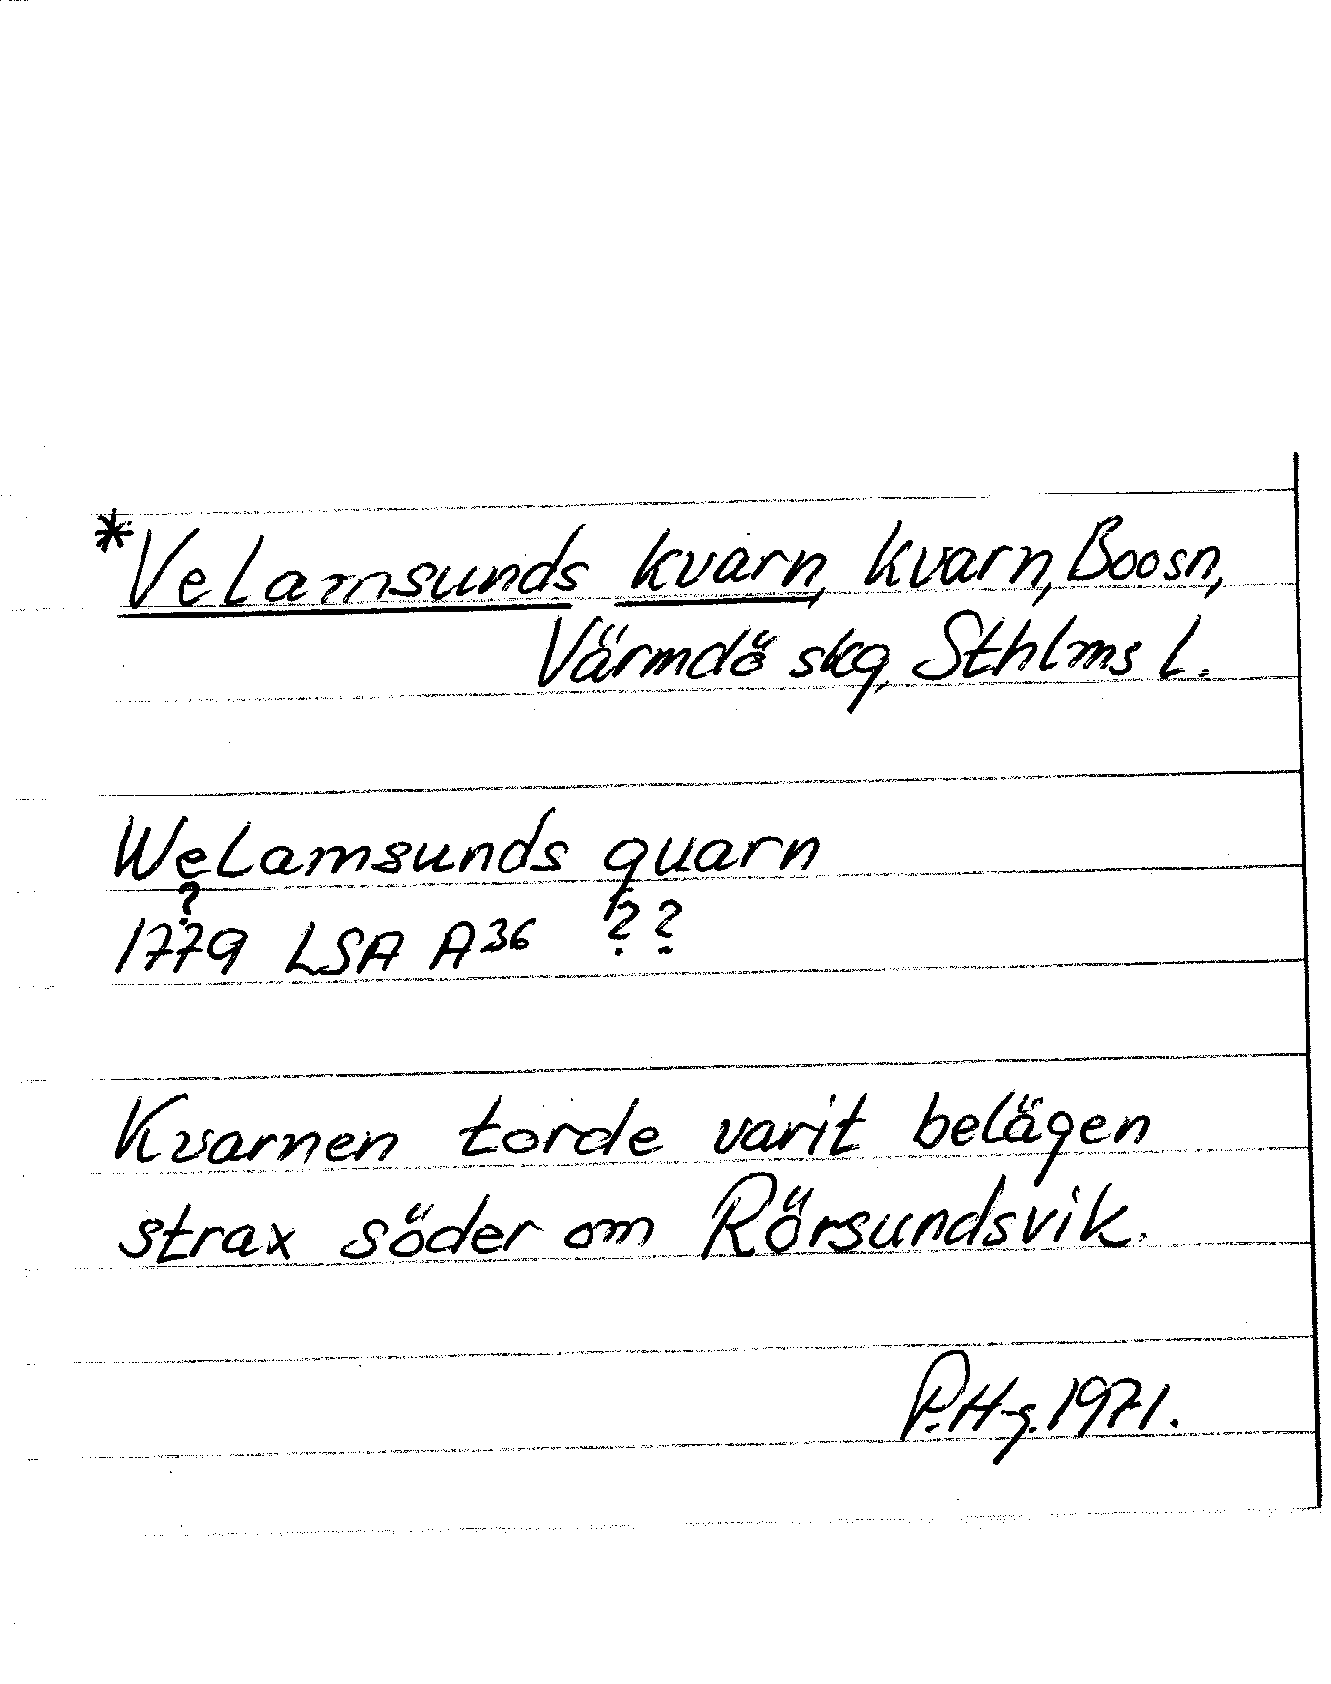 *Velamsunds kvarn, kvarn, Boosn,
Värmdö skg, Sthlms l.
Welamsunds quarn
?
1779 LSA A36 ??
Kvarnen torde varit belägen
strax söder om Rörsundsvik.
P.H-g. 1971.